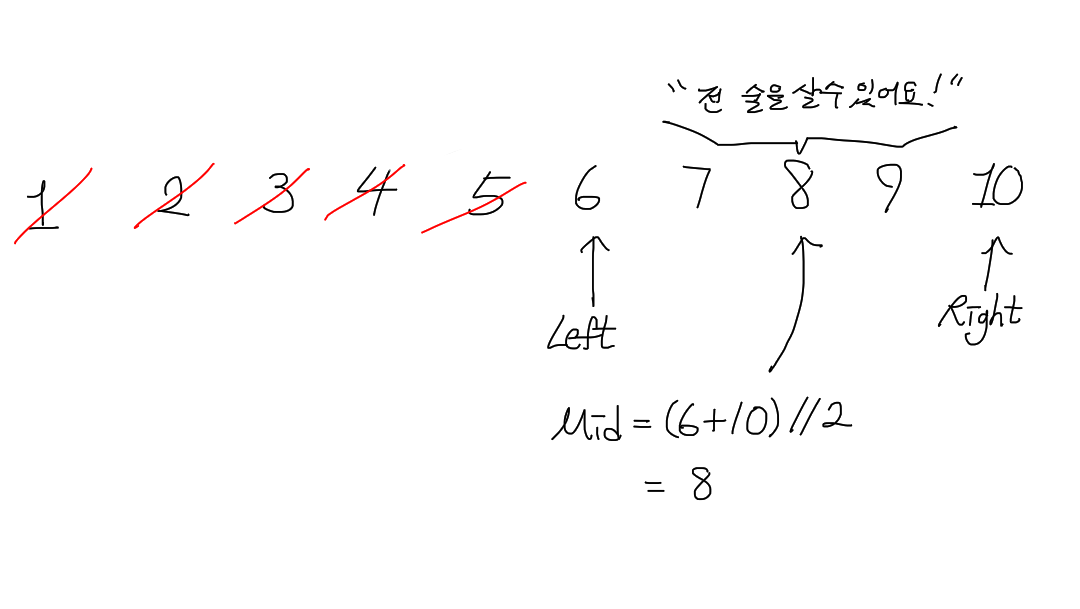 "전 술을 살수 있어요!"
1 2 3 4 5 6 7 8 9 10
Left
Right
Mid = (6+10)//2
= 8